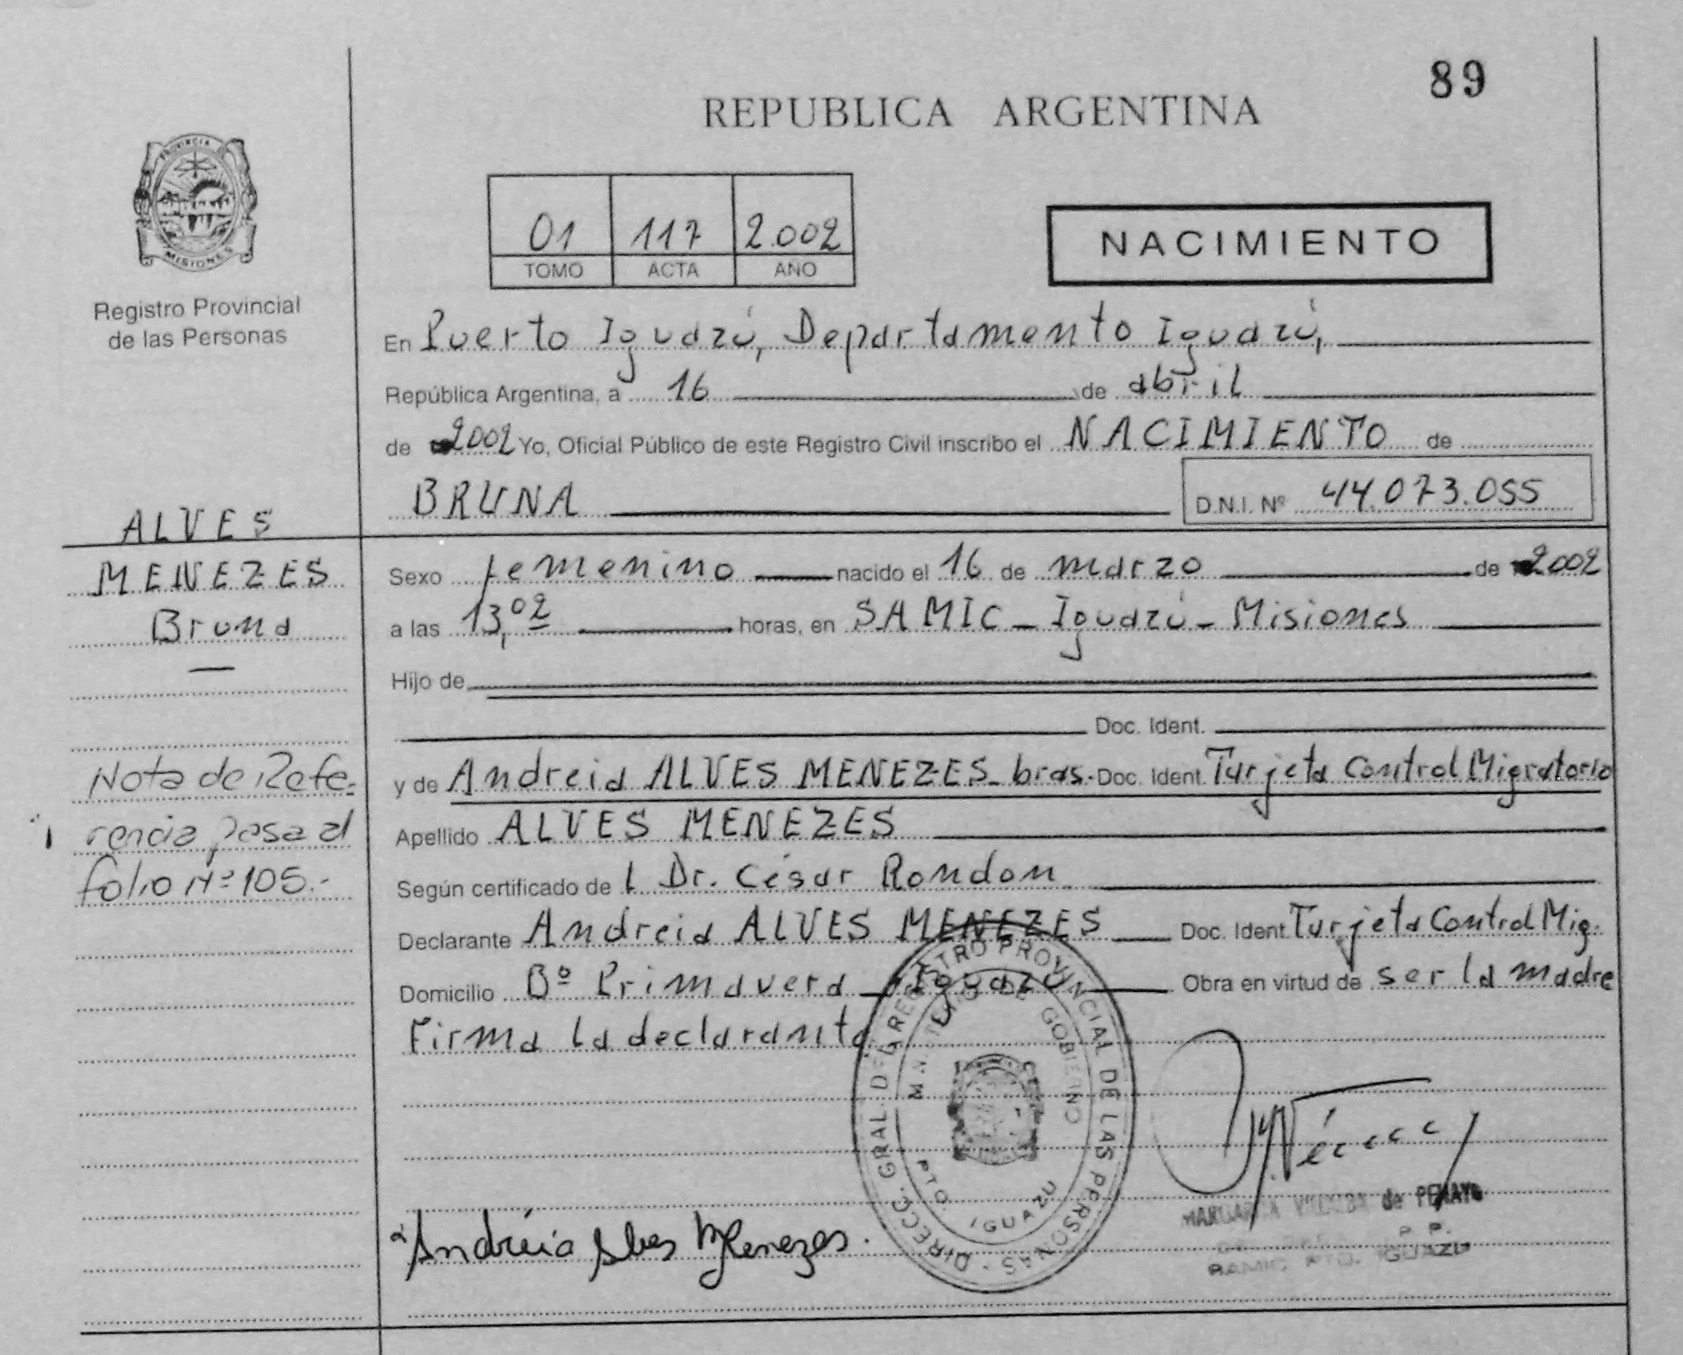 89
REPUBLICA ARGENTINA
PROVINCIA DE
MISIONES
Registro Provincial
de las Personas
01 117 2.002
TOMO ACTA AÑO
NACIMIENTO
En Puerto Iguazú, Departamento Iguazú,
República Argentina, a 16 de abril
de 2002 Yo, Oficial Público de este Registro Civil inscribo el NACIMIENTO de
BRUNA D.N.I. Nº 44.073.055
ALVES
MENEZES
Bruna
Sexo femenino nacido el 16 de marzo de 2002
a las 13,02 horas, en SAMIC - Iguazú - Misiones
Hijo de
Doc. Ident.
y de Andreia ALVES MENEZES - bras. Doc. Ident. Tarjeta Control Migratorio
Apellido ALVES MENEZES
Según certificado de l Dr. César Rondon
Declarante Andreia ALVES MENEZES Doc. Ident Tarjeta Control Mig.
Domicilio Bº Primavera - Iguazú Obra en virtud de ser la madre
Firma la declarante
Nota de Refe-
rencia pasa al
folio Nº 105.-
DIRECC. GRAL DEL REGISTRO PROVINCIAL DE LAS PERSONAS -
MINISTERIO DE GOBIERNO
PTO. IGUAZU
Andréia Alves Menezes.
MARGARITA de PENAYO
P. P.
SAMIC PTO. IGUAZU